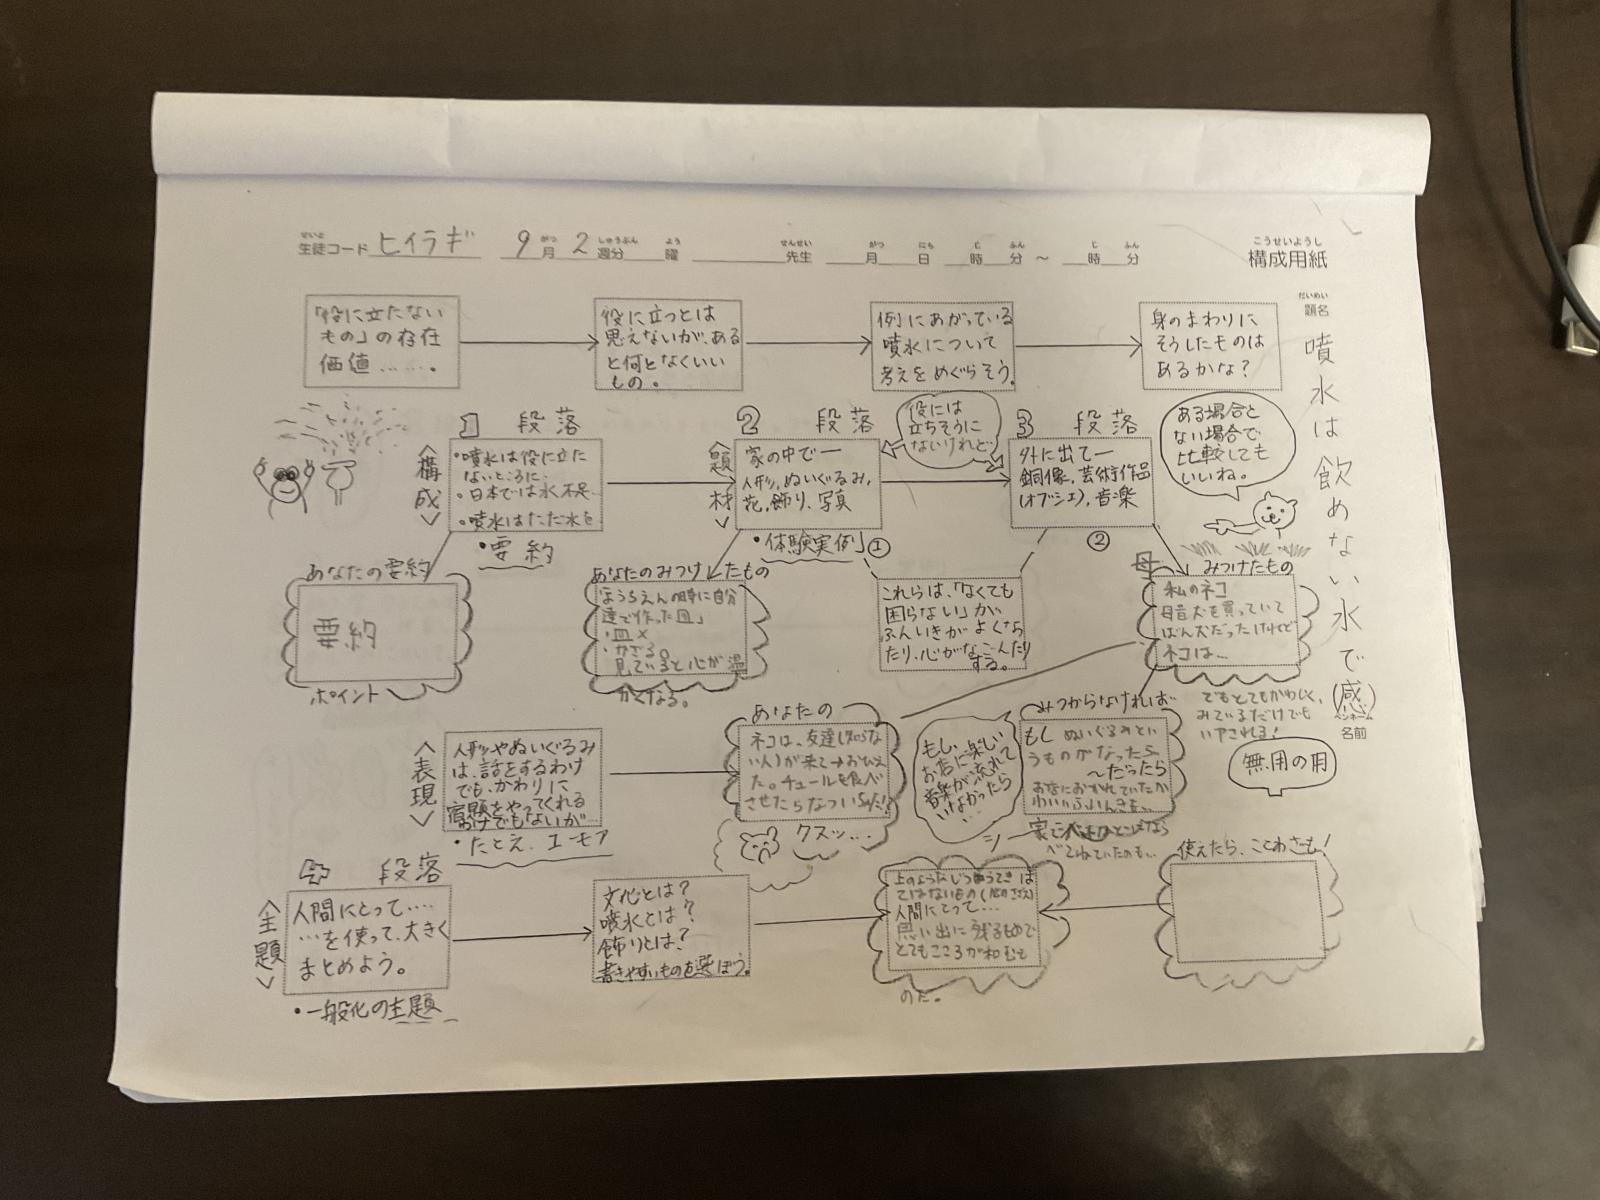 生徒コード ヒイラギ 9月 2週分 曜 先生 月 日 時 分 ～ 時 分
せいと がつ しゅうぶん よう せんせい がつ にち じ ふん じ ふん
こうせいようし
構成用紙
だいめい
題名
噴水は飲めない水で
(感)
ペンネーム
名前
「役に立たない
もの」の存在
価値……。
役に立つとは
思えないが、ある
と何となくいい
もの。
例にあがっている
噴水について
考えをめぐらそう。
身のまわりに
そうしたものは
あるかな？
1 段落
<構成>
・噴水は役に立た
ないところに…
・日本では水不足…
・噴水はただ水を
・要約
あなたの要約
要約
ポイント
2 段落
<題材>
家の中で―
人形、ぬいぐるみ、
花、飾り、写真
・体験実例①
役には
立ちそうに
ないけれど
3 段落
外に出て―
銅像、芸術作品
(オブジェ)、音楽
②
ある場合と
ない場合で
比較しても
いいね。
あなたのみつけたもの
ようちえんの時に自分
達で作った皿」
・皿×
・かざる。
見ていると心が温
かくなる。
これらは、「なくても
困らない」が、
ふんいきがよくなっ
たり、心がなごんだり
する。
母
みつけたもの
私のネコ
母昔犬を買っていて
ばん犬だったけれど
ネコは…
でもとてもかわいく、
みているだけでも
いやされる！
無用の用
<表現>
人形やぬいぐるみ
は、話をするわけ
でも、かわりに
宿題をやってくれる
わけでもないが…
・たとえ、ユーモア
あなたの
ネコは、友達(知らな
い人)が来て→おびえ
た。チュールを食べ
させたらなついちゃた!
クスッ…
もし、
お店に楽しい
音楽が流れて
いなかったら
…
みつからなければ
もし ぬいぐるみとい
うものがなったら
～だったら
お店におかれていたか
わいいふいんきを…
使えたら、ことわざも！
4 段落
<主題>
人間にとって……
…を使って、大きく
まとめよう。
・一般化の主題
文化とは？
噴水とは？
飾りとは？
書きやすいものを選ぼう。
上のような
ではないもの
人間にとって…
思い出に残るもので
とてもこころが和むも
のだ。